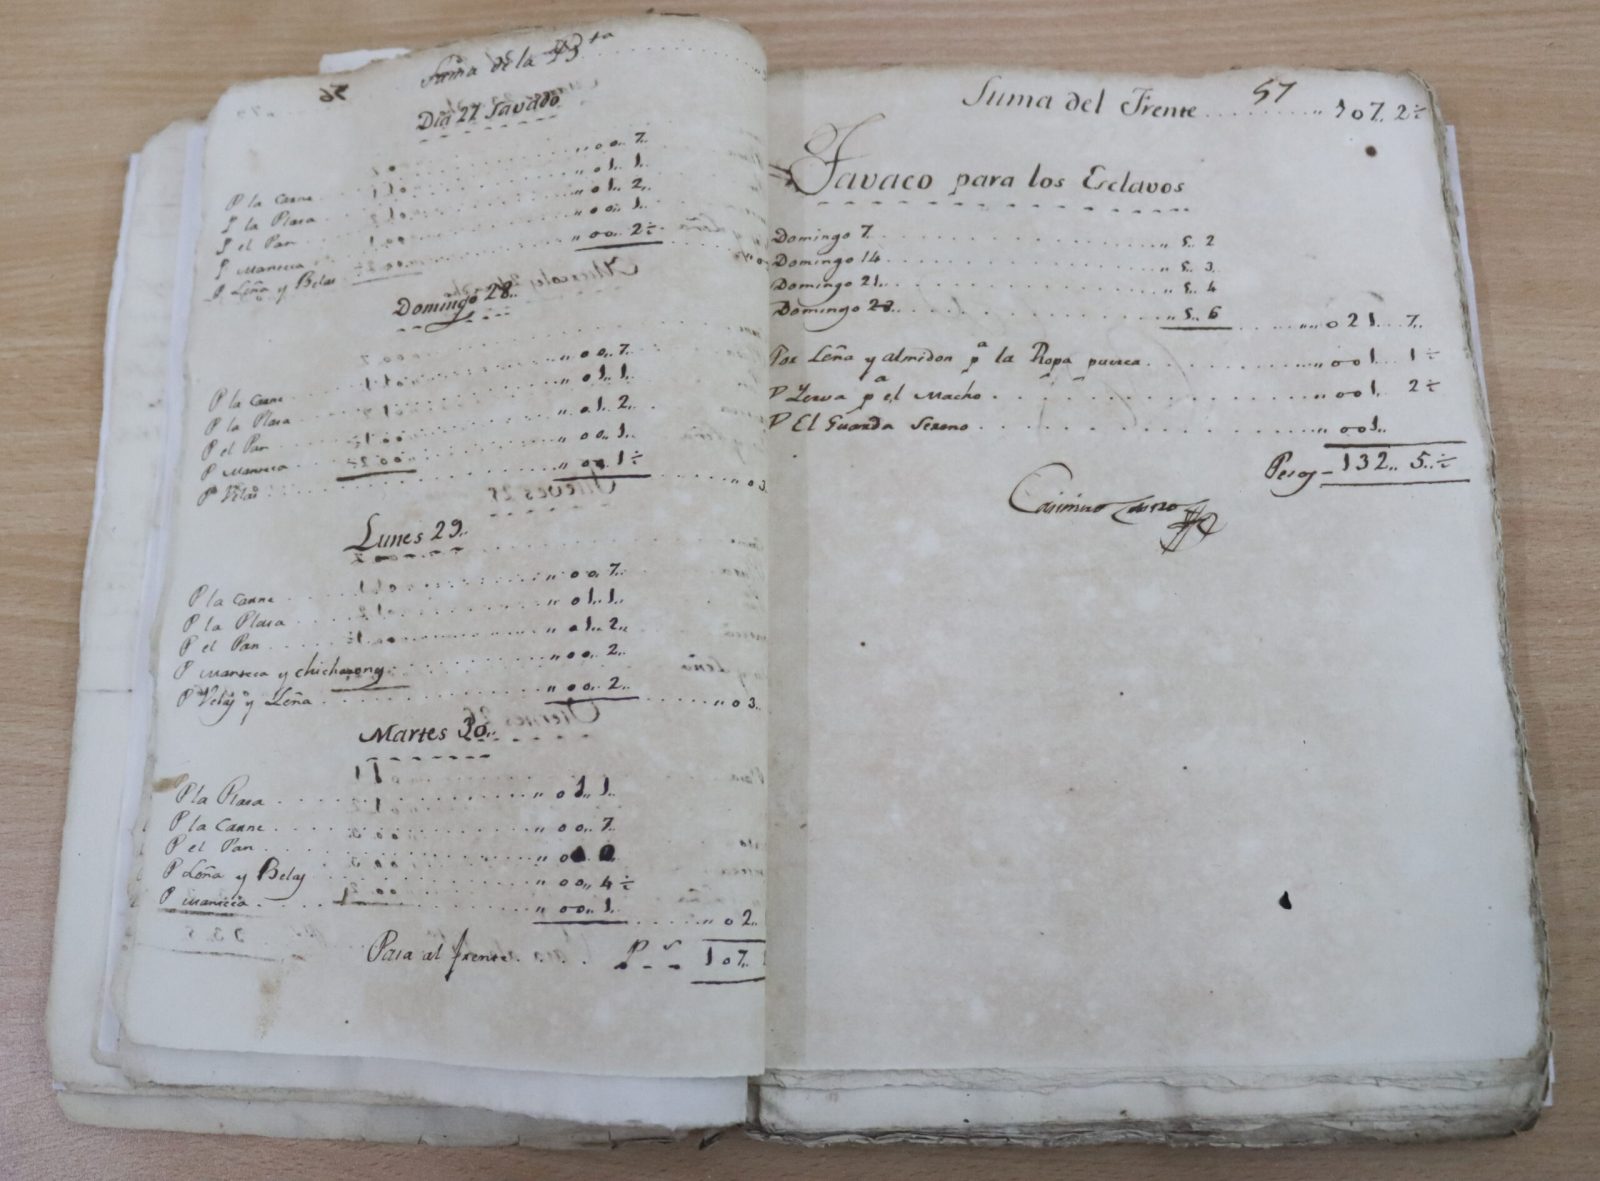 56
Suma de la B.ta
Dia 27 Savado
P la Carne ,,00.. 7..
P la Plasa ,,01.. 1..
P el Pan ,,01.. 2..
P Manteca ,,00.. 1..
P Leña y Belas ,,00.. 2½
Domingo 28..
P la Carne ,,00.. 7..
P la Plasa ,,01.. 1..
P el Pan ,,01.. 2..
P Manteca ,,00.. 1..
P Velas ,,00.. 1½ ,,03..
Lunes 29..
P la Carne ,,00.. 7..
P la Plasa ,,01.. 1..
P el Pan ,,01.. 2..
P Manteca y chicharrony ,,00.. 2..
P Velas y Leña ,,00.. 2.. ,,03..
Martes 30..
P la Plasa ,,01.. 1..
P la Carne ,,00.. 7..
P el Pan
P Leña y Belas ,,00.. 4½
P Manteca ,,00.. 1.. ,,02..
Pasa al frente P.s 107
57
Suma del Frente ,,107.. 2½
Tavaco para los Esclavos
Domingo 7 ,,5.. 2
Domingo 14 ,,5.. 3
Domingo 21 ,,5.. 4
Domingo 28 ,,5.. 6 ,,021.. 7..
Por Leña y almidon p.a la Ropa puerca ,,001.. 1½
P Yerva p.a el Macho ,,001.. 2½
P El Guarda Sereno ,,001..
Pesos 132.. 5½
Casimiro Castro